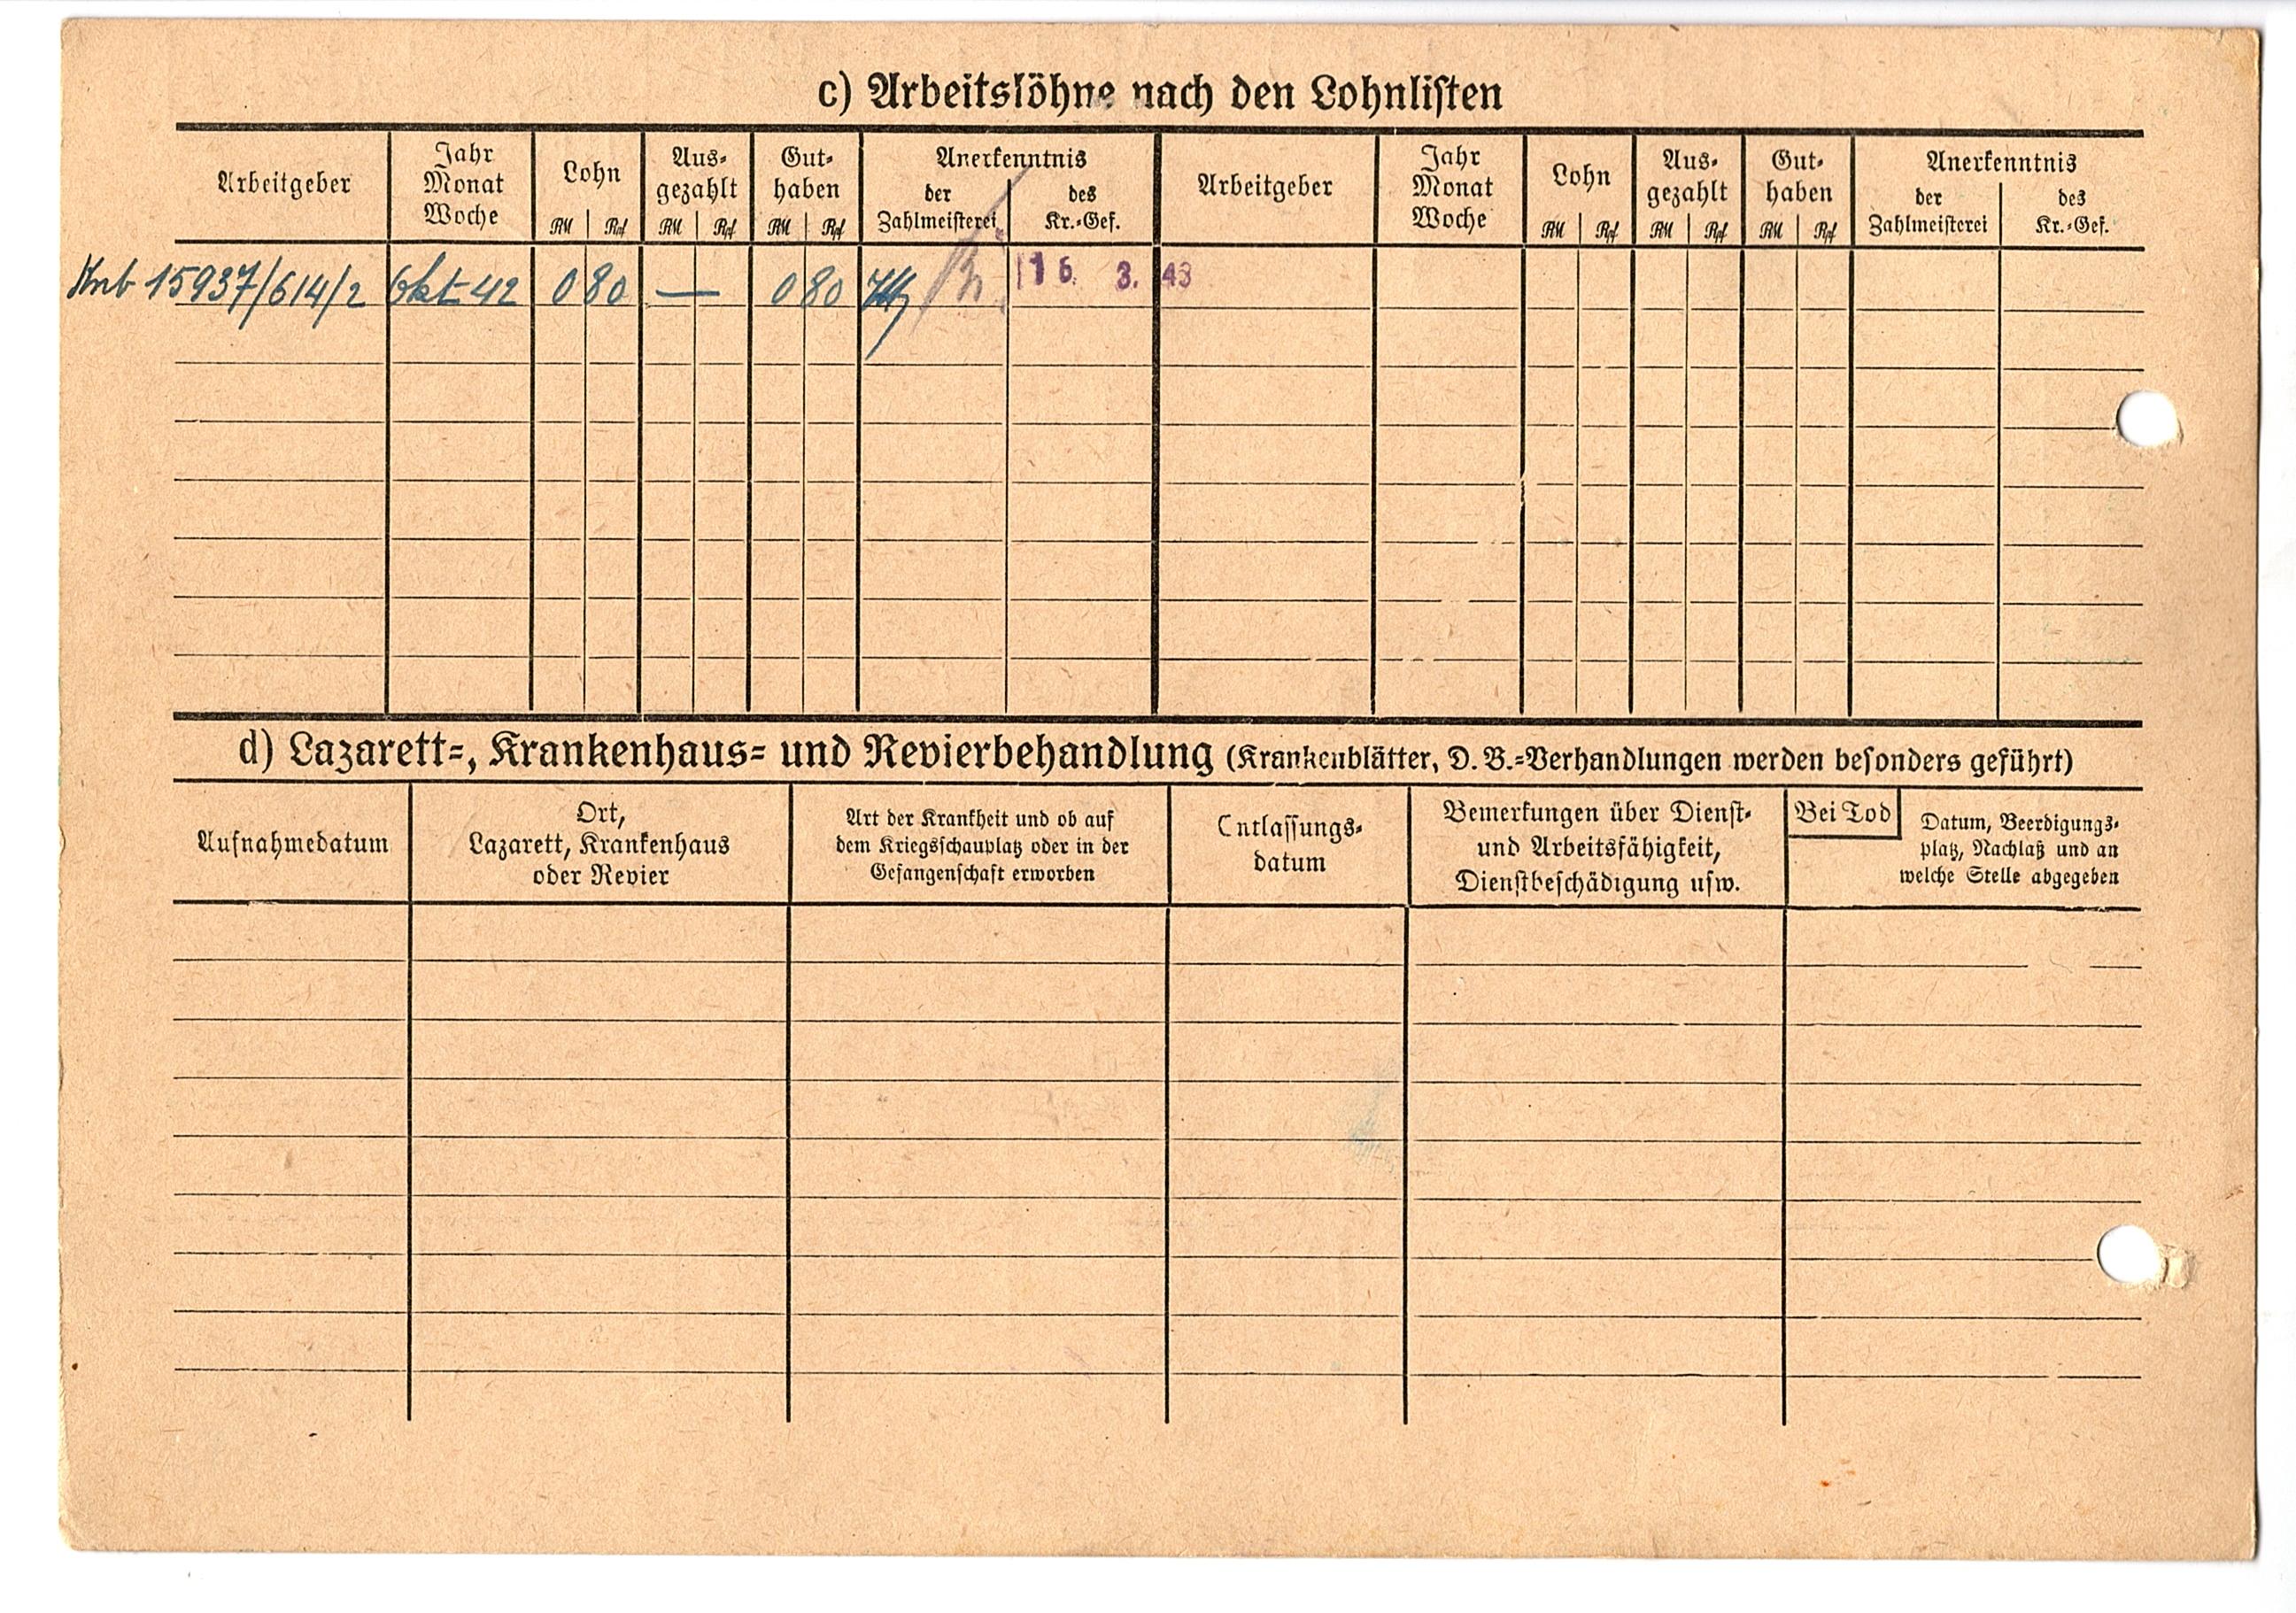 c) Arbeitslöhne nach den Lohnlisten
Arbeitgeber
Jahr
Monat
Woche
Lohn
RM Rpf
Aus-
gezahlt
RM Rpf
Gut-
haben
RM Rpf
Anerkenntnis
der
Zahlmeisterei
des
Kr.-Gef.
Arbeitgeber
Jahr
Monat
Woche
Lohn
RM Rpf
Aus-
gezahlt
RM Rpf
Gut-
haben
RM Rpf
Anerkenntnis
der
Zahlmeisterei
des
Kr.-Gef.
15937/614/2 Okt 42 0 80 — 0 80 16. 3. 43
d) Lazarett-, Krankenhaus- und Revierbehandlung (Krankenblätter, D. B.-Verhandlungen werden besonders geführt)
Aufnahmedatum
Ort,
Lazarett, Krankenhaus
oder Revier
Art der Krankheit und ob auf
dem Kriegsschauplatz oder in der
Gefangenschaft erworben
Entlassungs-
datum
Bemerkungen über Dienst-
und Arbeitsfähigkeit,
Dienstbeschädigung usw.
Bei Tod
Datum, Beerdigungs-
platz, Nachlaß und an
welche Stelle abgegeben